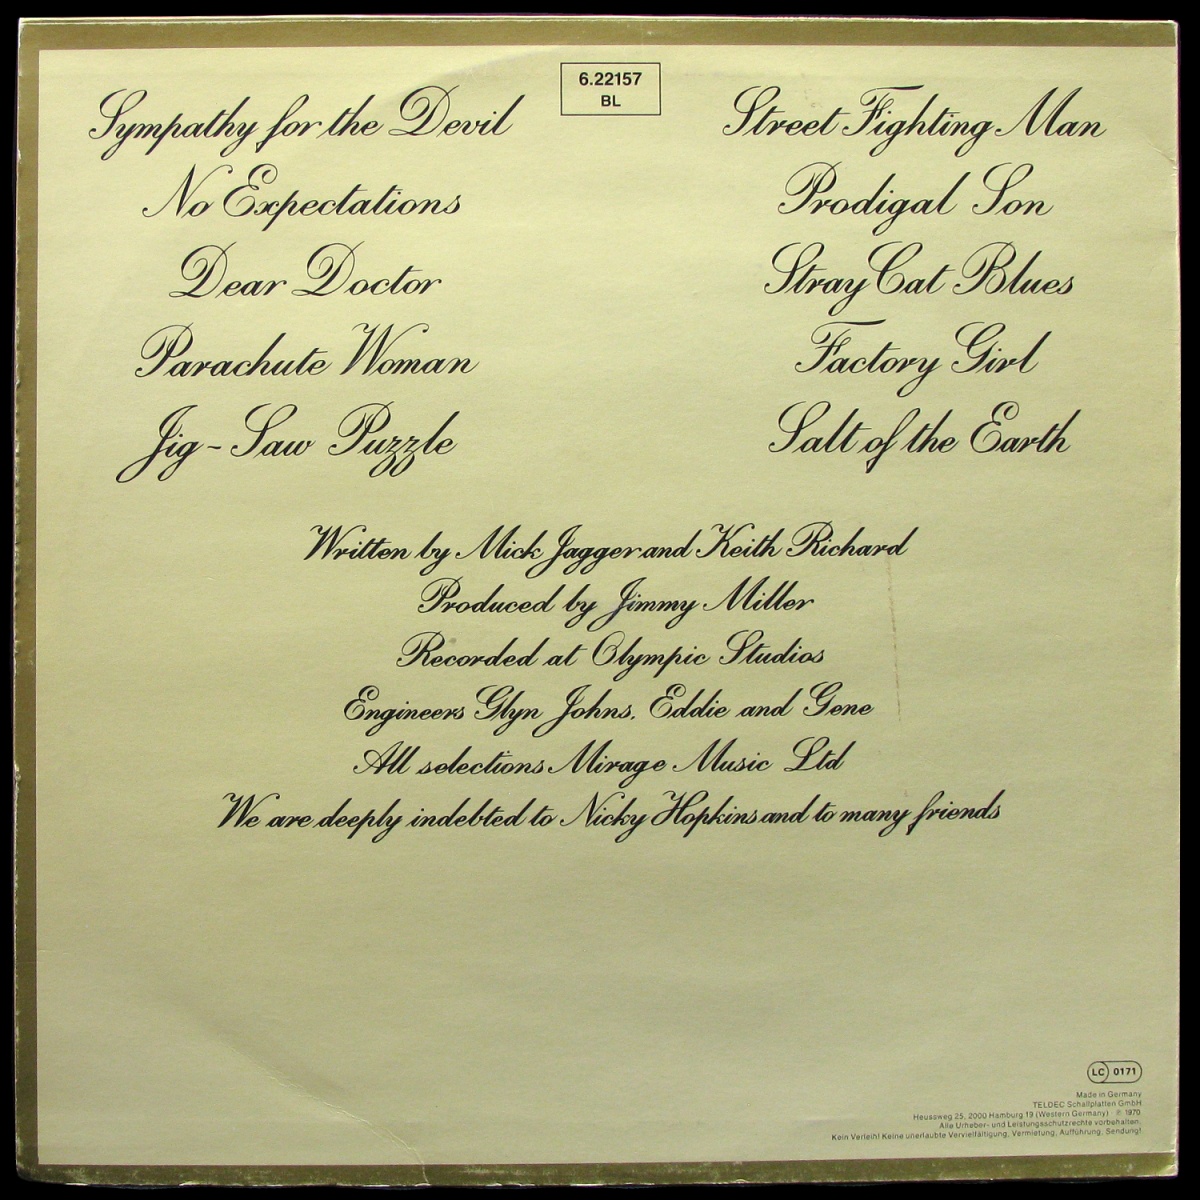 6.22157
BL
Sympathy for the Devil
No Expectations
Dear Doctor
Parachute Woman
Jig-Saw Puzzle
Street Fighting Man
Prodigal Son
Stray Cat Blues
Factory Girl
Salt of the Earth
Written by Mick Jagger and Keith Richard
Produced by Jimmy Miller
Recorded at Olympic Studios
Engineers Glyn Johns, Eddie and Gene
All selections Mirage Music Ltd
We are deeply indebted to Nicky Hopkins and to many friends
LC 0171
Made in Germany
TELDEC Schallplatten GmbH
Heussweg 25, 2000 Hamburg 19 (Western Germany) · ℗ 1970
Alle Urheber- und Leistungsschutzrechte vorbehalten.
Kein Verleih! Keine unerlaubte Vervielfältigung, Vermietung, Aufführung, Sendung!